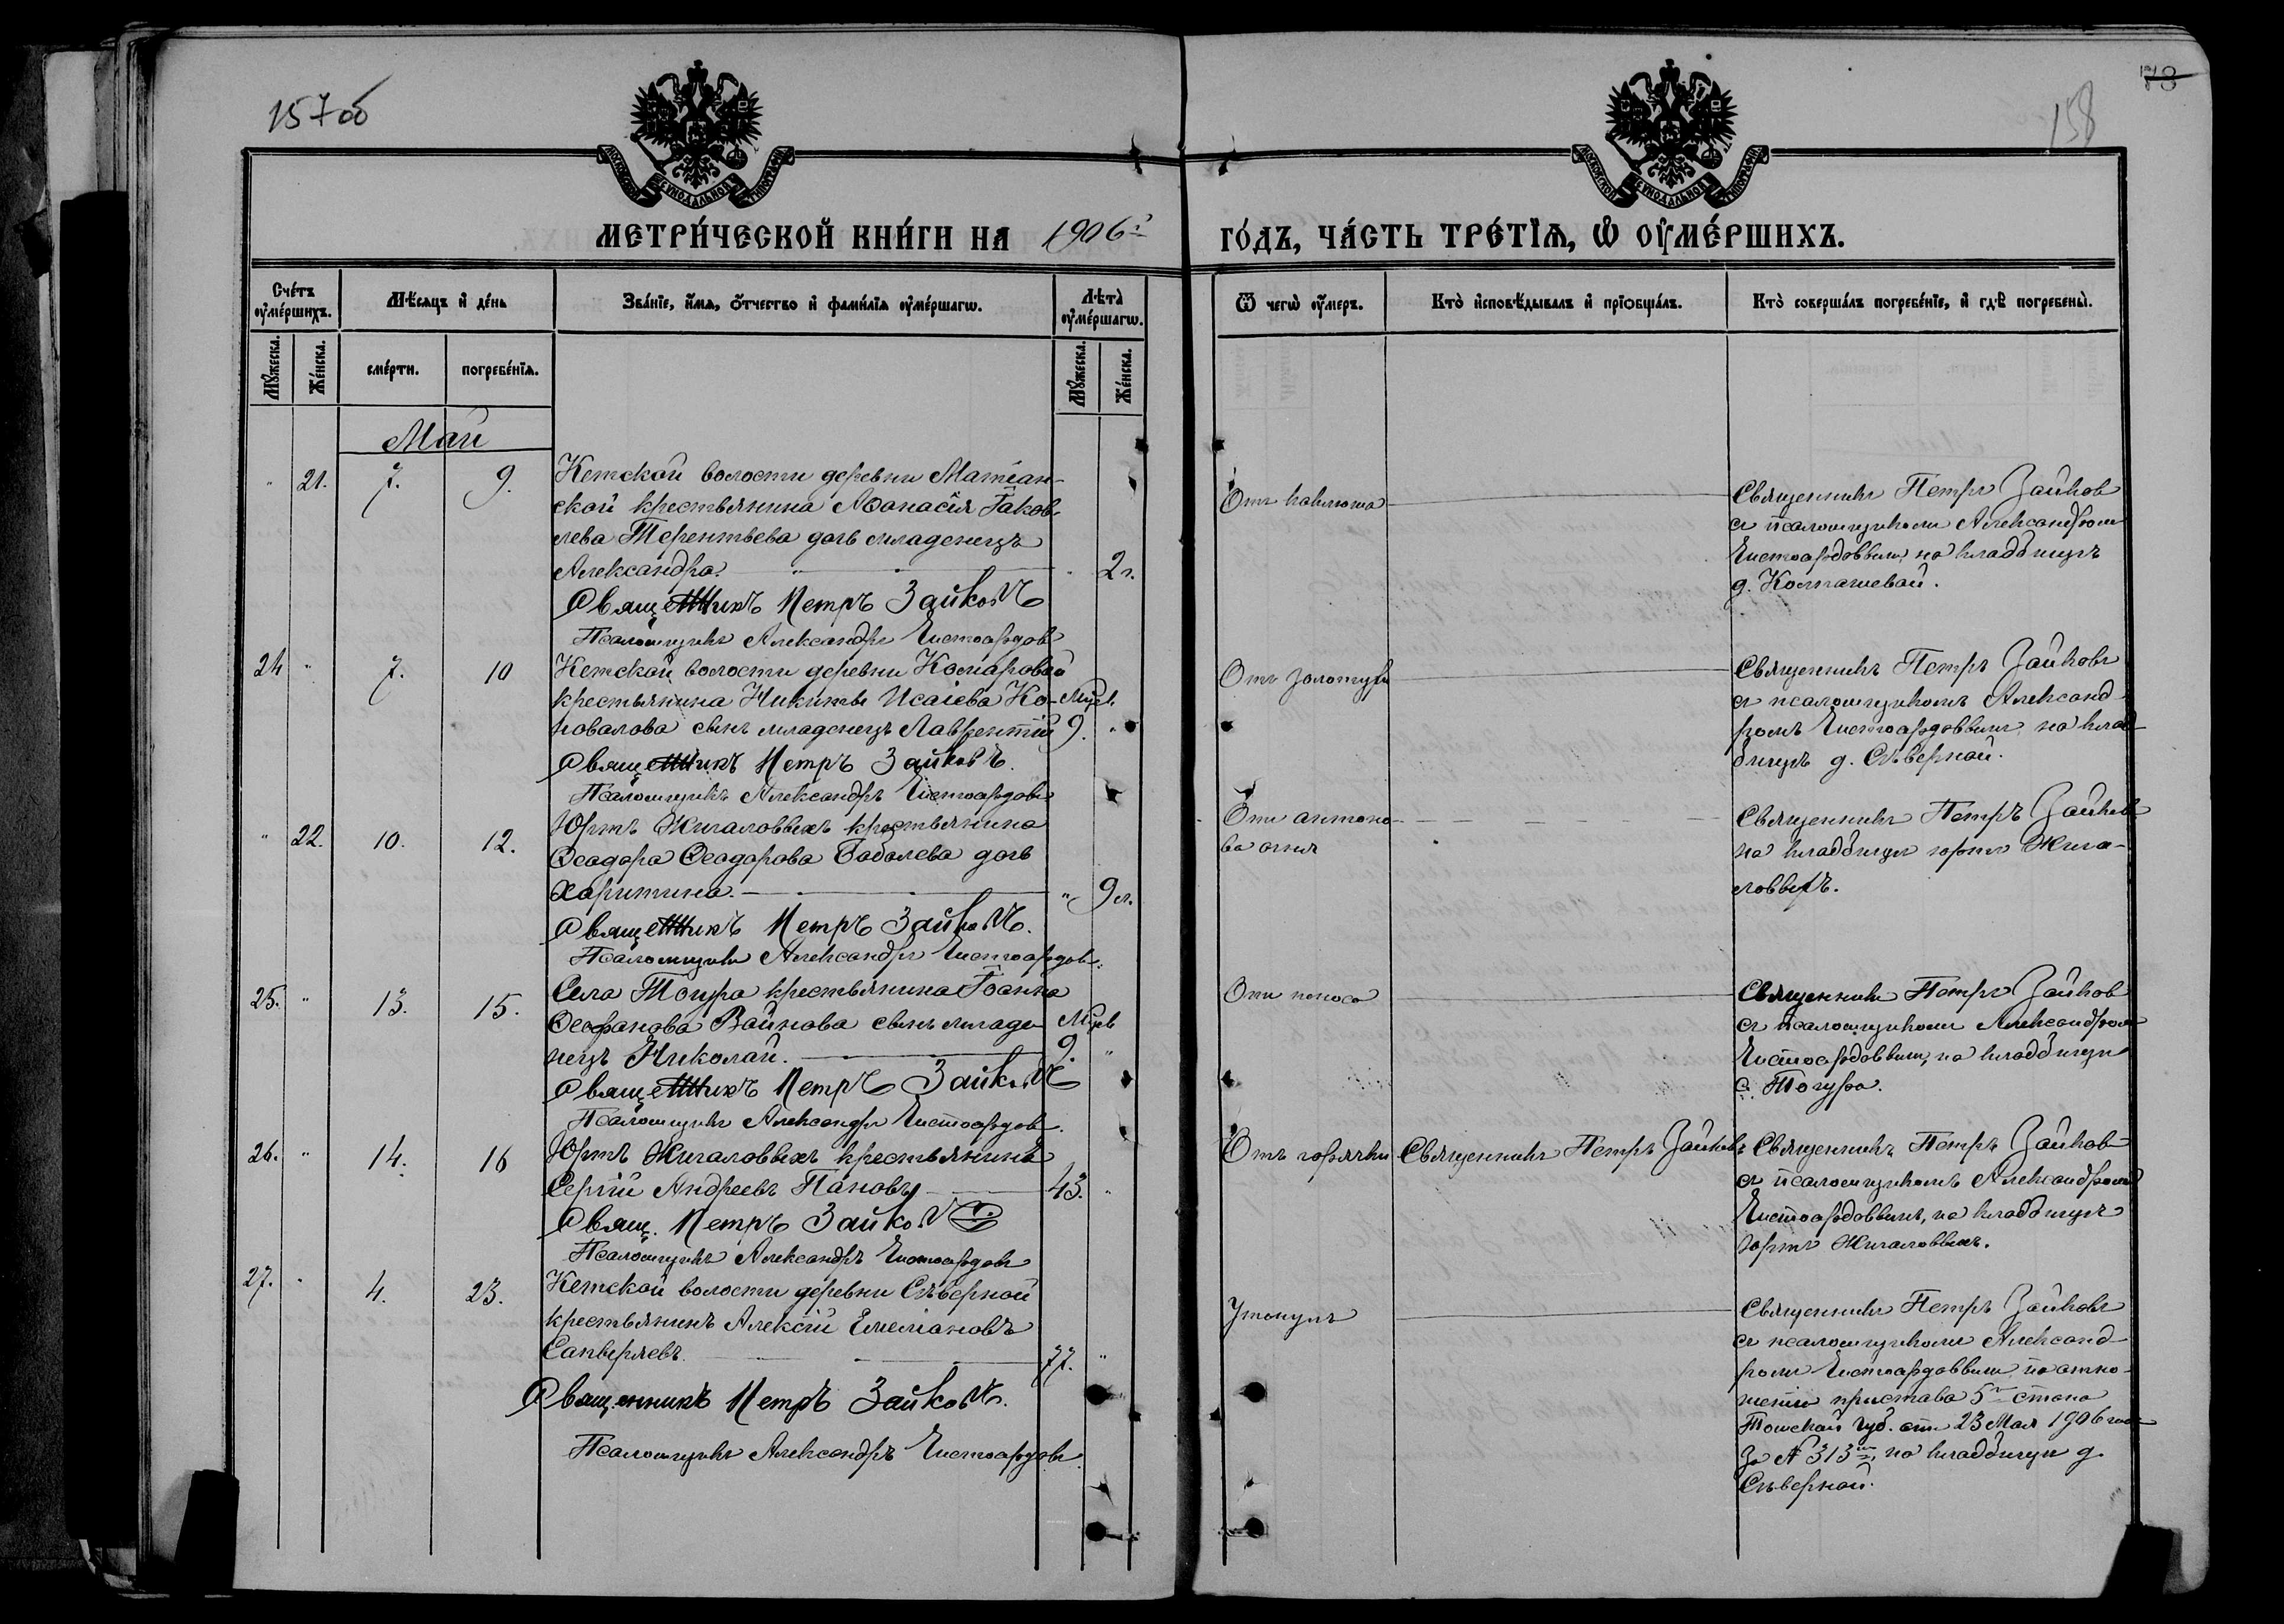 157об
158
78
МОСКОВСКОЙ СѴНОДАЛЬНОЙ ТИПОГРАФІИ
МОСКОВСКОЙ СѴНОДАЛЬНОЙ ТИПОГРАФІИ
МЕТРИ́ЧЕСКОЙ КНИ́ГИ НА 1906й
ГО́ДЪ, ЧА́СТЬ ТРЕ́ТІѦ, Ѡ ОУ҆МЕ́РШИХЪ.
Счётъ оу҆ме́ршихъ.
Мѣ́сяцъ и҆ де́нь
Зва́нїе, и҆́мѧ, ѻ҆́тчество и҆ фами́лїѧ оу҆ме́ршагѡ.
Лѣ́та̀ оу҆ме́ршагѡ.
Ѿ чегѡ̀ оу҆́меръ.
Кто̀ и҆сповѣ́дывалъ и҆ прїѻбща́лъ.
Кто̀ соверша́лъ погребе́нїе, и҆ гдѣ̀ погребены̀.
Мꙋ́жеска.
Же́нска.
сме́рти.
погребе́нїѧ.
Мꙋ́жеска.
Же́нска.
Май
" 21. 7. 9.
Кетской волости деревни Матіан-
ской крестьянина Аѳанасія Іаков-
лева Терентьева дочь младенецъ
Александра. " 2 г.
Священникъ Петръ Зайковъ
Псаломщикъ Александръ Чистосердовъ
Отъ коклюша
Священникъ Петръ Зайковъ
съ псаломщикомъ Александромъ
Чистосердовымъ, на кладбищѣ
д. Колпашевой.
24 " 7. 10
Кетской волости деревни Комаровой
крестьянина Никиты Исаіева Ко- Мѣс.
новалова сынъ младенецъ Лаврентій 9. "
Священникъ Петръ Зайковъ.
Псаломщикъ Александръ Чистосердовъ
Отъ золотухи
Священникъ Петръ Зайковъ
съ псаломщикомъ Александ-
ромъ Чистосердовымъ, на клад-
бищѣ д. Сѣверной.
" 22. 10. 12.
Юртъ Жигаловыхъ крестьянина
Ѳеодора Ѳеодорова дочь
Харитина. " 9 л.
Священникъ Петръ Зайковъ.
Псаломщикъ Александръ Чистосердовъ.
Отъ антоно-
ва огня
Священникъ Петръ Зайковъ
на кладбищѣ юртъ Жига-
ловыхъ.
25. " 13. 15.
Села Тогура крестьянина Іоанна
Ѳеофанова сынъ младе- Мѣс.
нецъ Николай. 9. "
Священникъ Петръ Зайковъ
Псаломщикъ Александръ Чистосердовъ.
Отъ поноса
Священникъ Петръ Зайковъ
съ псаломщикомъ Александромъ
Чистосердовымъ, на кладбищѣ
с. Тогура.
26. " 14. 16
Юртъ Жигаловыхъ крестьянинъ
Сергій Андреевъ Пановъ 43. "
Свящ. Петръ Зайковъ
Псаломщикъ Александръ Чистосердовъ
Отъ горячки
Священникъ Петръ Зайковъ
Священникъ Петръ Зайковъ
съ псаломщикомъ Александромъ
Чистосердовымъ, на кладбищѣ
юртъ Жигаловыхъ.
27. " 4. 23.
Кетской волости деревни Сѣверной
крестьянинъ Алексій Емеліановъ
77. "
Священникъ Петръ Зайковъ.
Псаломщикъ Александръ Чистосердовъ.
Утонулъ
Священникъ Петръ Зайковъ
съ псаломщикомъ Александ-
ромъ Чистосердовымъ, по отно-
шенію пристава 5го стана
Томской губ. отъ 23 Мая 1906 года
за № 313м, на кладбищѣ д.
Сѣверной.